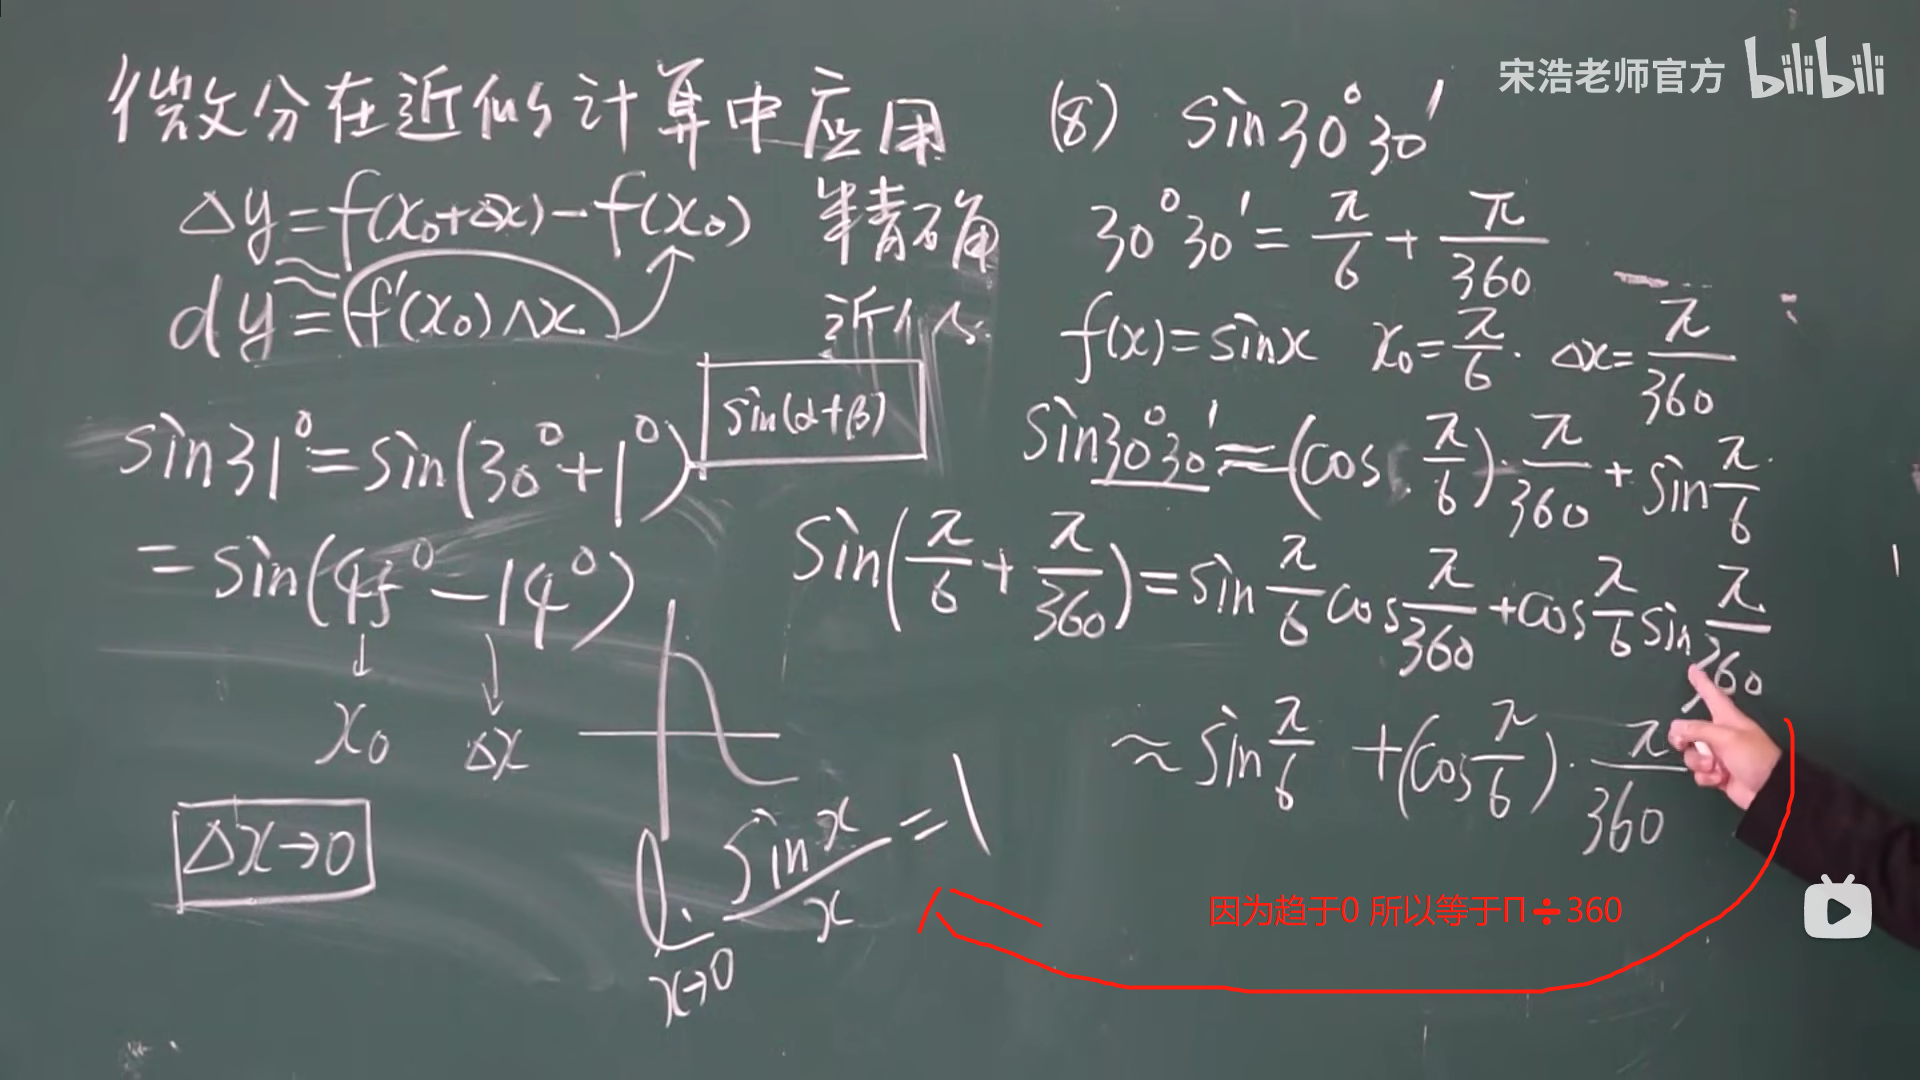 宋浩老师官方 bilibili
微分在近似计算中应用
Δy=f(x₀+Δx)-f(x₀) 精确
≈
dy=f'(x₀)Δx 近似
sin31°=sin(30°+1°) sin(α+β)
=sin(45°-14°)
↓ ↓
x₀ Δx
Δx→0
lim x→0 sinx/x=1
(8) sin30°30′
30°30′=π/6+π/360
f(x)=sinx x₀=π/6. Δx=π/360
sin30°30′≈(cos π/6)·π/360+sin π/6
sin(π/6+π/360)=sin π/6 cos π/360+cos π/6 sin π/360
≈sin π/6 +(cos π/6)·π/360
因为趋于0 所以等于Π➗360